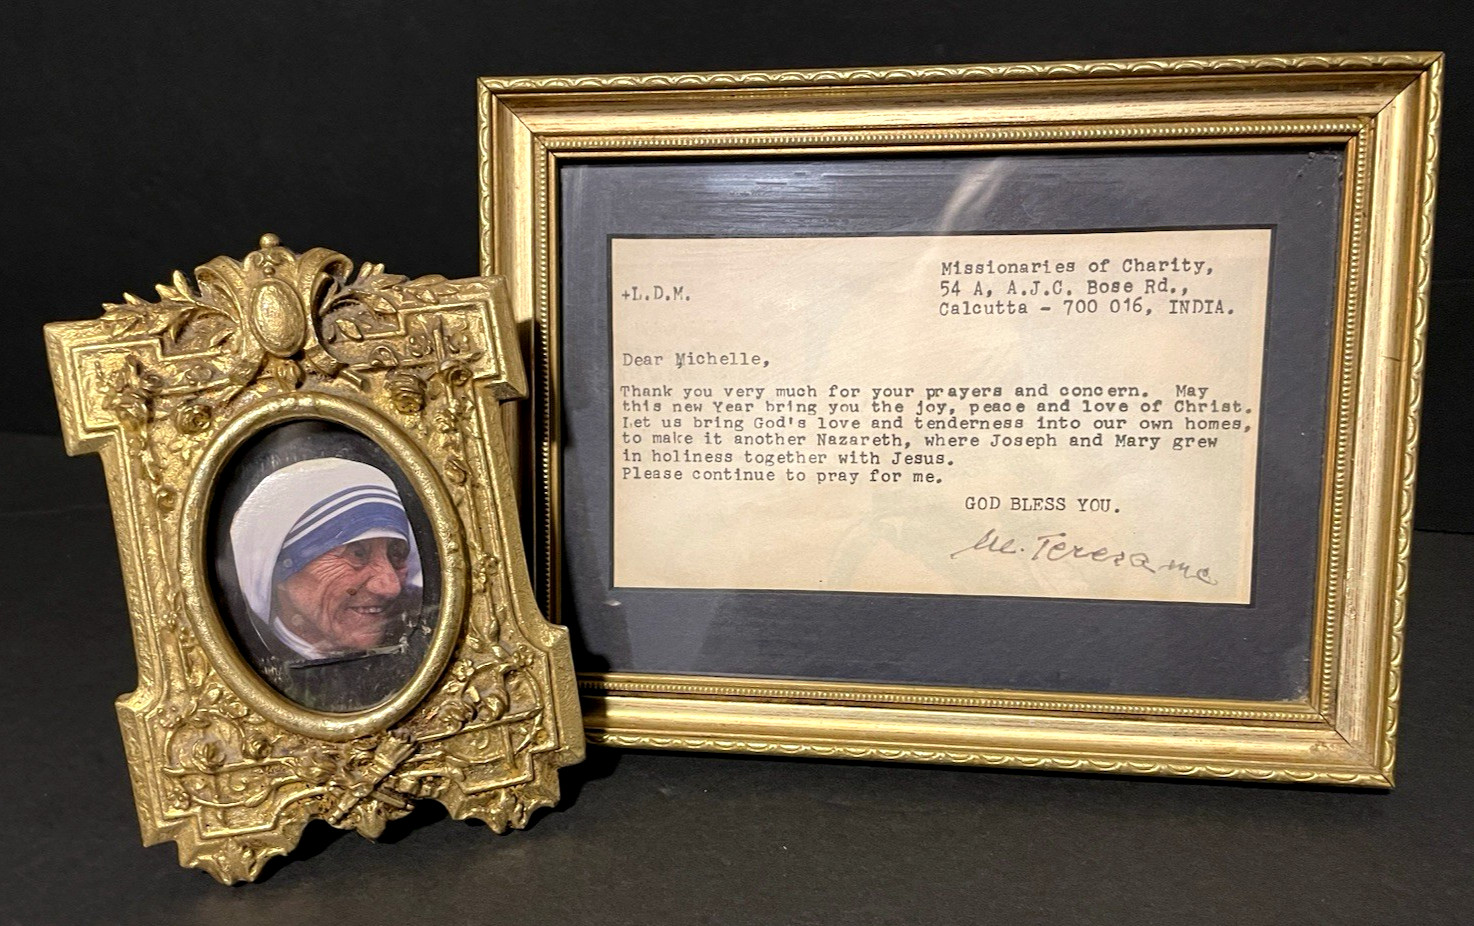 Missionaries of Charity,
+L.D.M.
54 A, A.J.C. Bose Rd.,
Calcutta - 700 016, INDIA.
Dear Michelle,
Thank you very much for your prayers and concern. May
this new Year bring you the joy, peace and love of Christ.
Let us bring God's love and tenderness into our own homes,
to make it another Nazareth, where Joseph and Mary grew
in holiness together with Jesus.
Please continue to pray for me.
GOD BLESS YOU.
M. Teresa mc